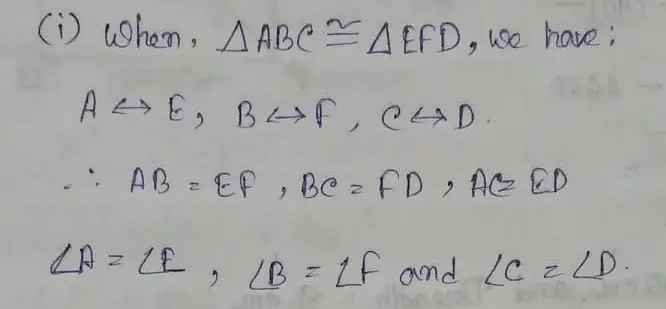 (i) When, △ABC ≅ △EFD, we have:
A ↔ E, B ↔ F, C ↔ D.
∴ AB = EF, BC = FD, AC = ED
∠A = ∠E, ∠B = ∠F and ∠C = ∠D.